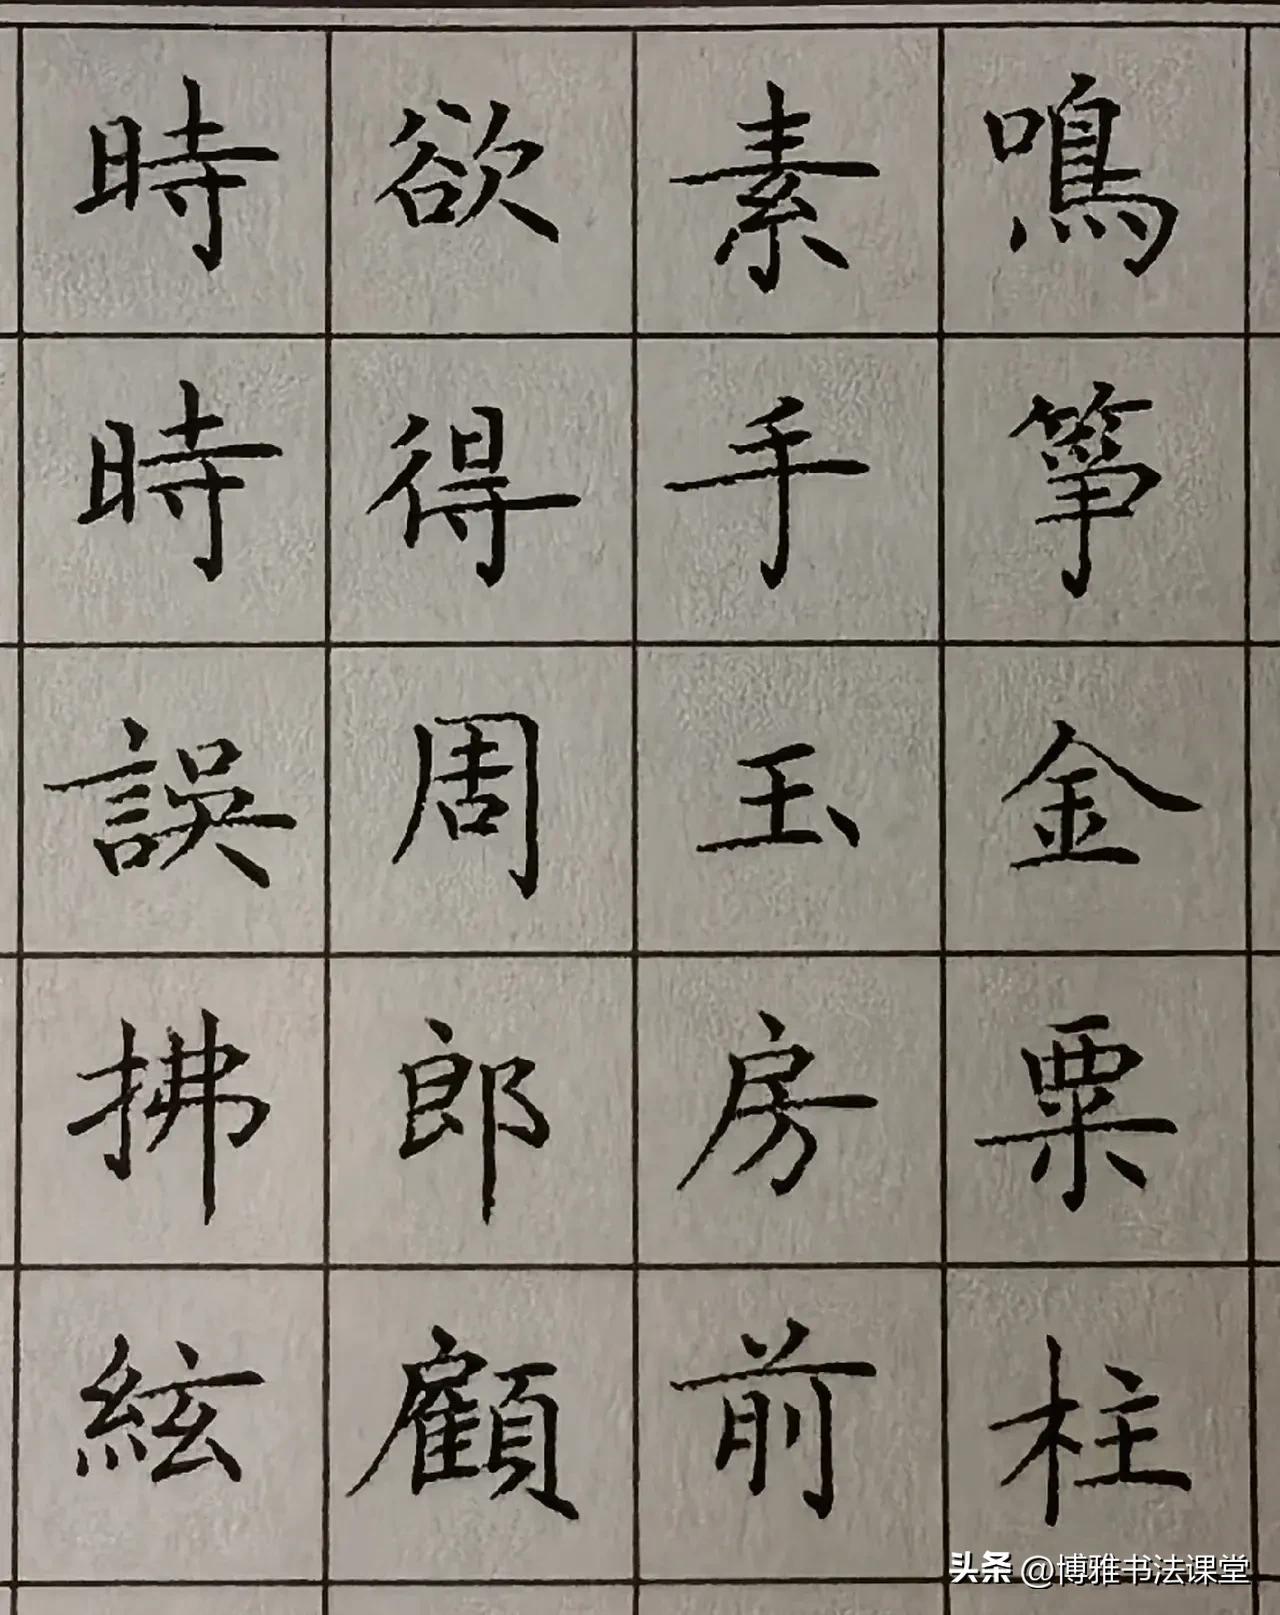 鳴筝金粟柱
素手玉房前
欲得周郎顧
時時誤拂絃
头条 @博雅书法课堂